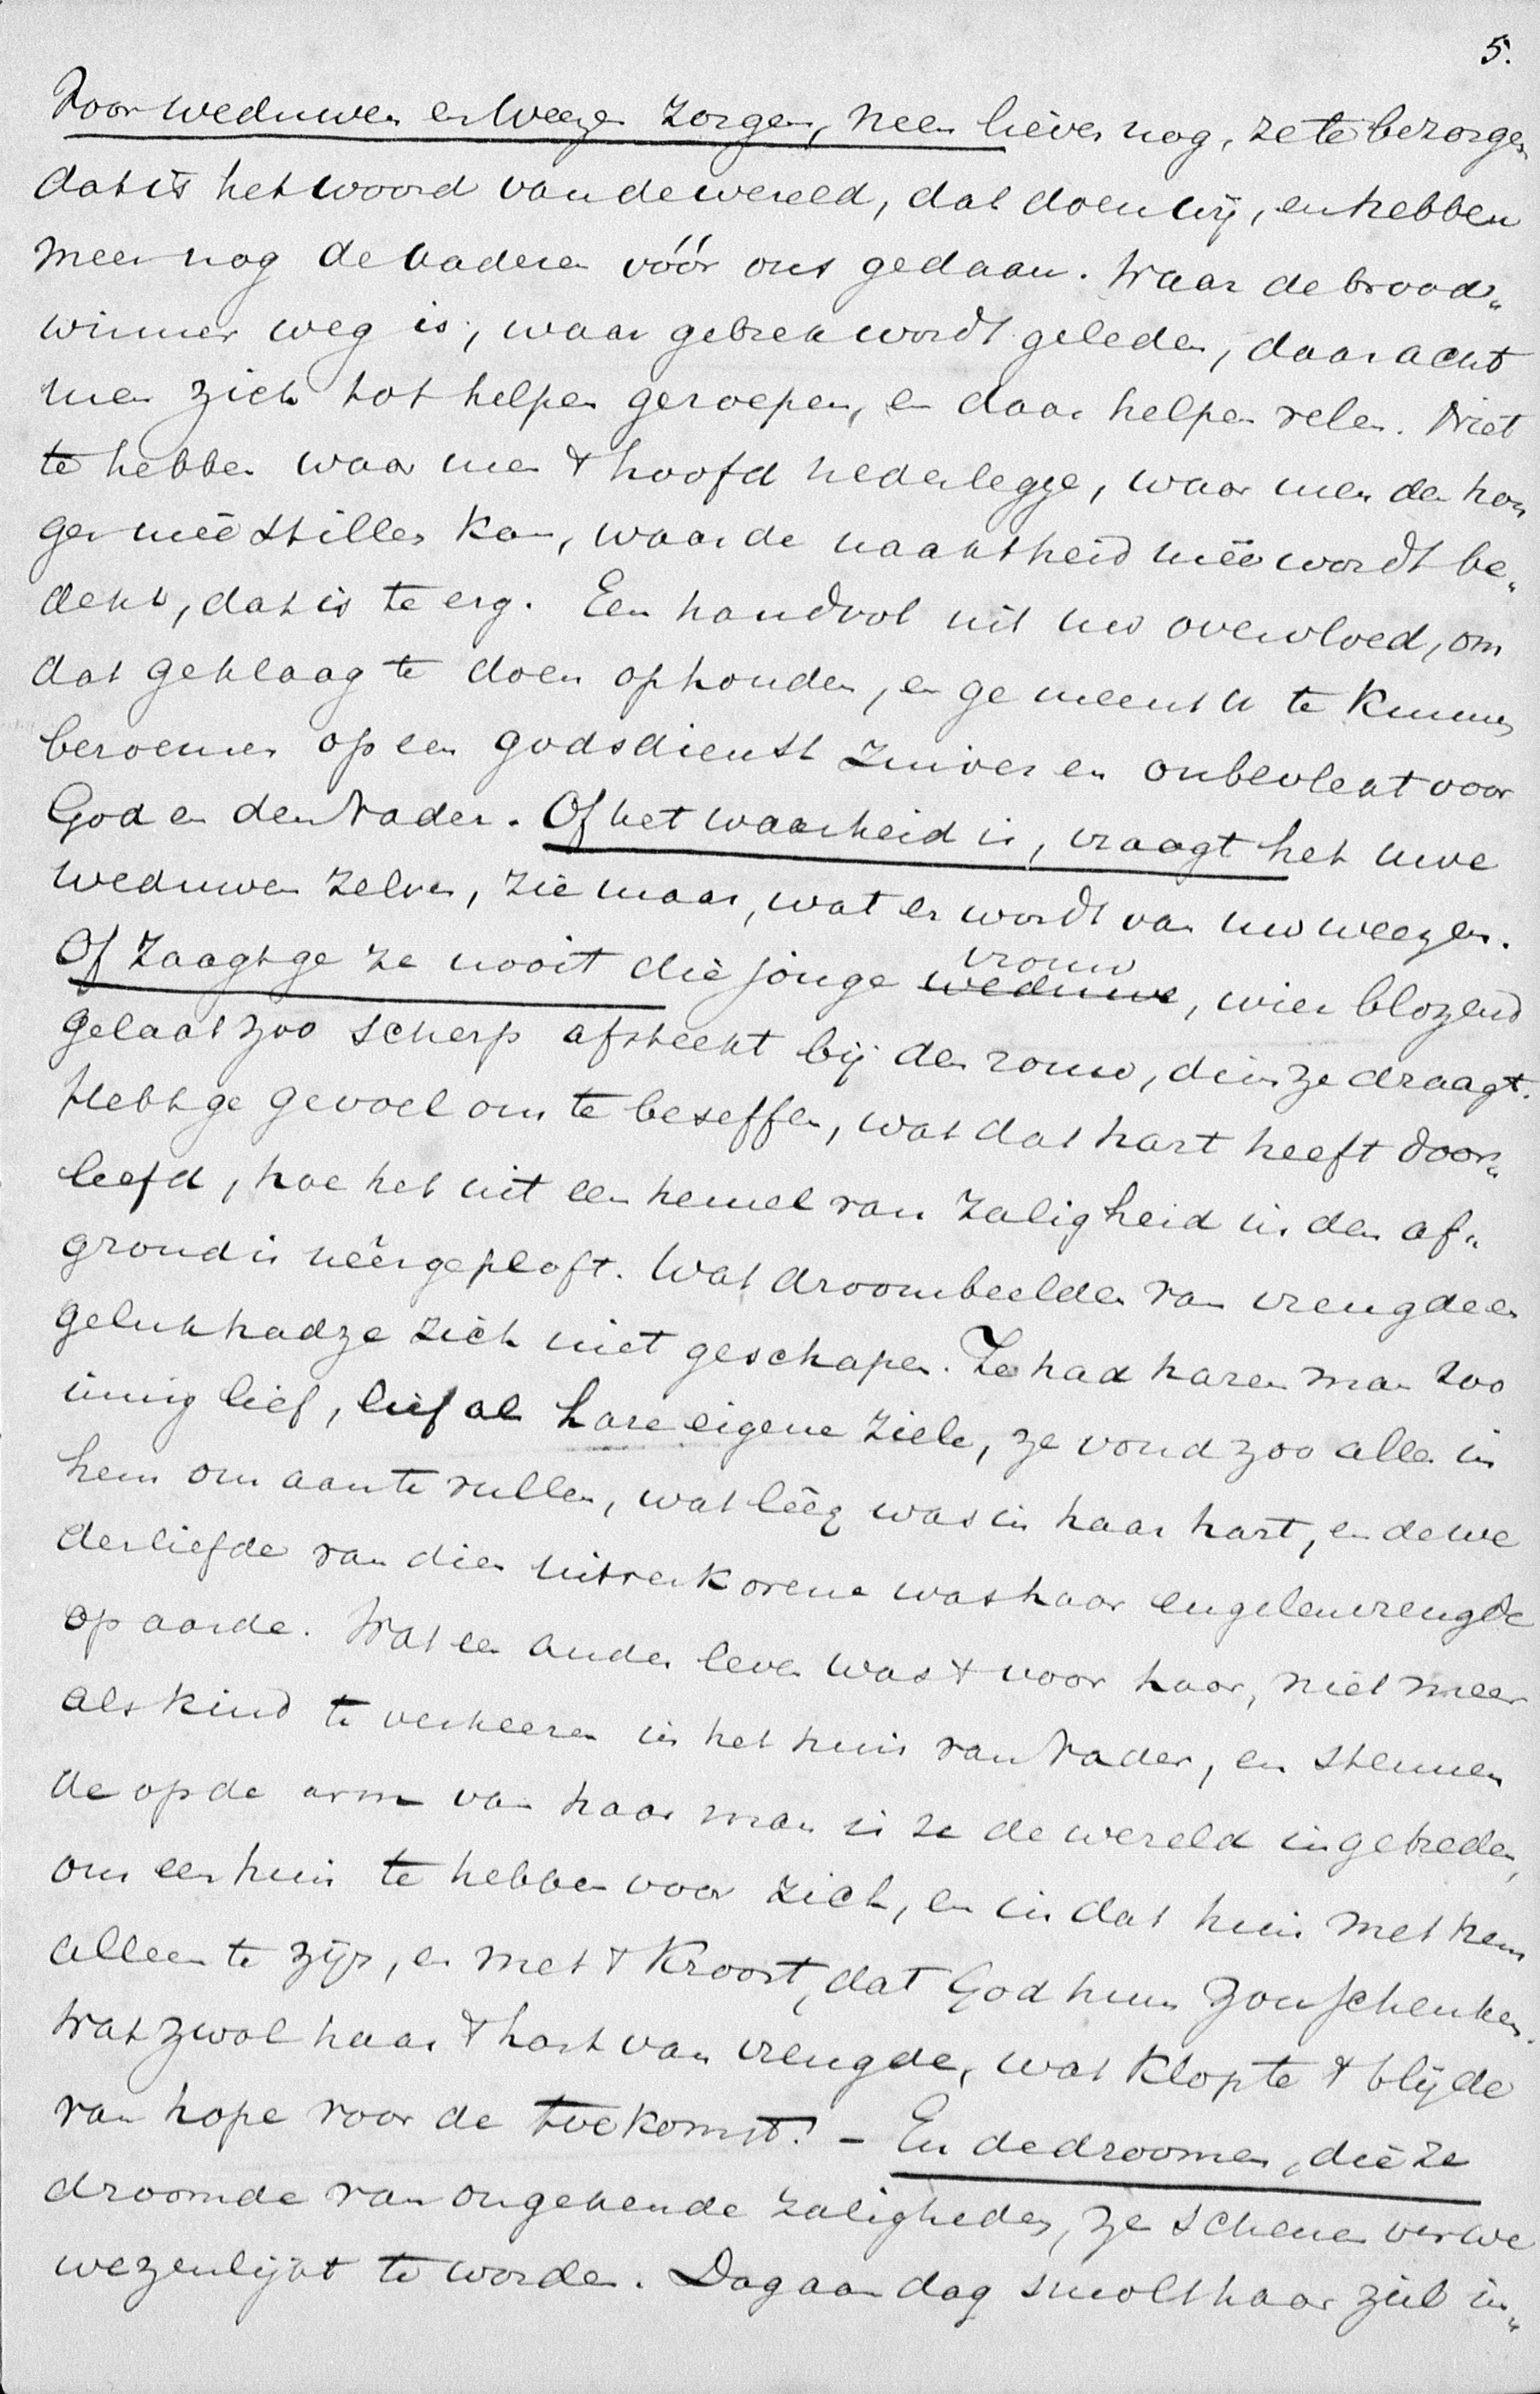 5.
Voor weduwen en Weezen zorgen, neen liever nog, ze te bezorgen
dat is het woord van de wereld, dat doen wij, en hebben
meer nog de vaderen vóór ons gedaan. Waar de brood„
winner weg is, waar gebrek wordt geleden, daar acht
men zich tot helpen geroepen, en daar helpen velen. Niet
te hebben waar men 't hoofd nederlegge, waar men den hon
ger meê stillen kan, waar de naaktheid meê wordt be„
dekt, dat is te erg. Een handvol uit uw overvloed, om
dat geklaag te doen ophouden, en ge meent U te kunnen
beroemen op een godsdienst zuiver en onbevlekt voor
God en den Vader. Of het waarheid is, vraagt het uwe
weduwen zelven, zie maar, wat er wordt van uw weezen.
Of zaagt ge ze nooit die jonge weduwe vrouw, wier blozend
gelaat zoo scherp afsteekt bij den rouw, dien ze draagt.
Hebt ge gevoel om te beseffen, wat dat hart heeft door„
leefd, hoe het uit een hemel van zaligheid in den af„
grond is neêrgeploft. Wat droombeelden van vreugde en
geluk had ze zich niet geschapen. Ze had haren man zoo
innig lief, lief als hare eigene ziele, ze vond zoo alles in
hem om aan te vullen, wat lêeg was in haar hart, en de we
derliefde van dien uitverkorene was haar engelenvreugde
op aarde. Wat een ander leven was 't voor haar, niet meer
als kind te verkeeren in het huis van Vader, en steunen
de op de arm van haar man is ze de wereld ingetreden,
om een huis te hebben voor zich, en in dat huis met hem
alleen te zijn, en met 't Kroost, dat God hun zou schenken.
Wat zwol haar 't hart van vreugde, wat klopte 't blijde
van hope voor de toekomst! – En de droomen, die ze
droomde van ongekende zaligheden, ze schenen verwe
wezenlijkt te worden. Dag aan dag smolt haar ziel in„